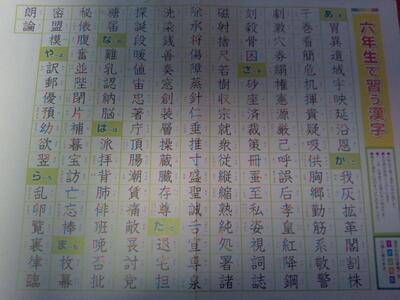 六年生で習う漢字
あ 胃異遺域宇映延沿恩 か 我灰拡革閣割株
干巻看簡危机揮貴疑吸供胸郷勤筋系敬警
劇激穴券絹権憲源厳己呼誤后孝皇紅降鋼
刻穀骨困 さ 砂座済裁策冊蚕至私姿視詞誌
磁射捨尺若樹収宗就衆従縦縮熟純処署諸
除承将傷障蒸針仁垂推寸盛聖誠舌宣専泉
洗染銭善奏窓創装層操蔵臓存尊 た 退宅担
探誕段暖値宙忠著庁頂腸潮賃痛敵展討党
糖届 な 難乳認納脳 は 派拝背肺俳班晩否批
秘俵腹奮並陛閉片補暮宝訪亡忘棒 ま 枚幕
密盟模 や 訳郵優預幼欲翌 ら 乱卵覧裏律臨
朗論